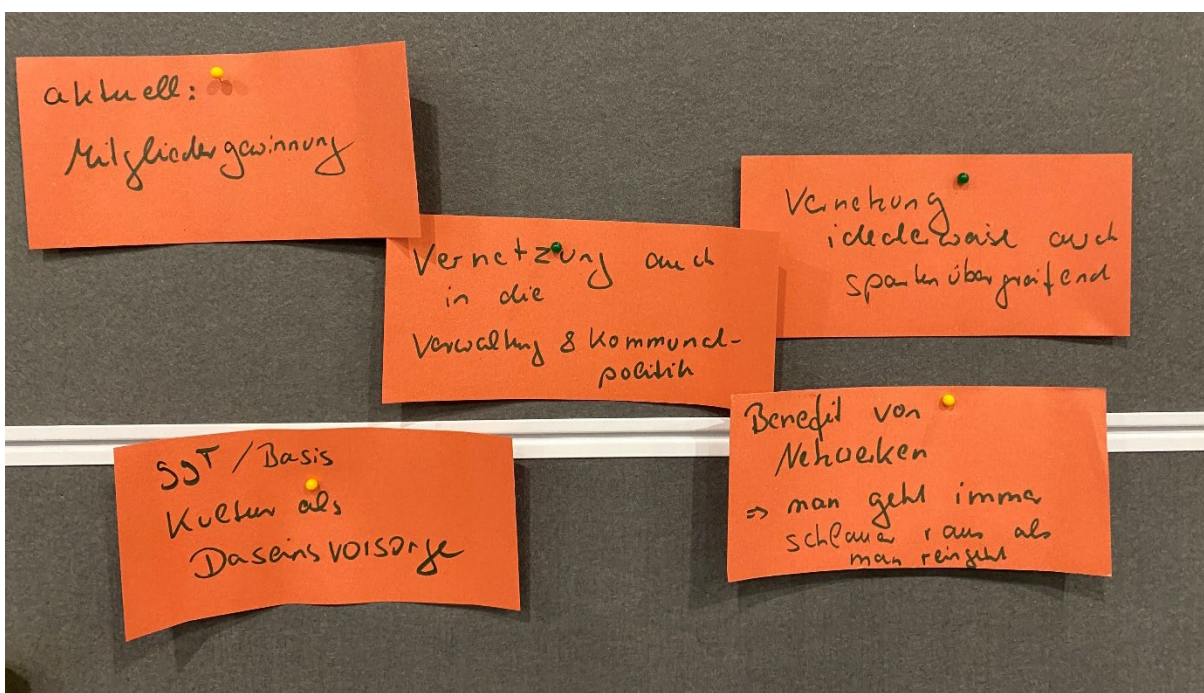 aktuell:
Mitgliedergewinnung
Vernetzung auch
in die
Verwaltung & Kommunal-
politik
Vernetzung
idealerweise auch
spartenübergreifend
SGT / Basis
Kultur als
Daseinsvorsorge
Benefit von
Netzwerken
⇒ man geht immer
schlauer raus als
man reingeht